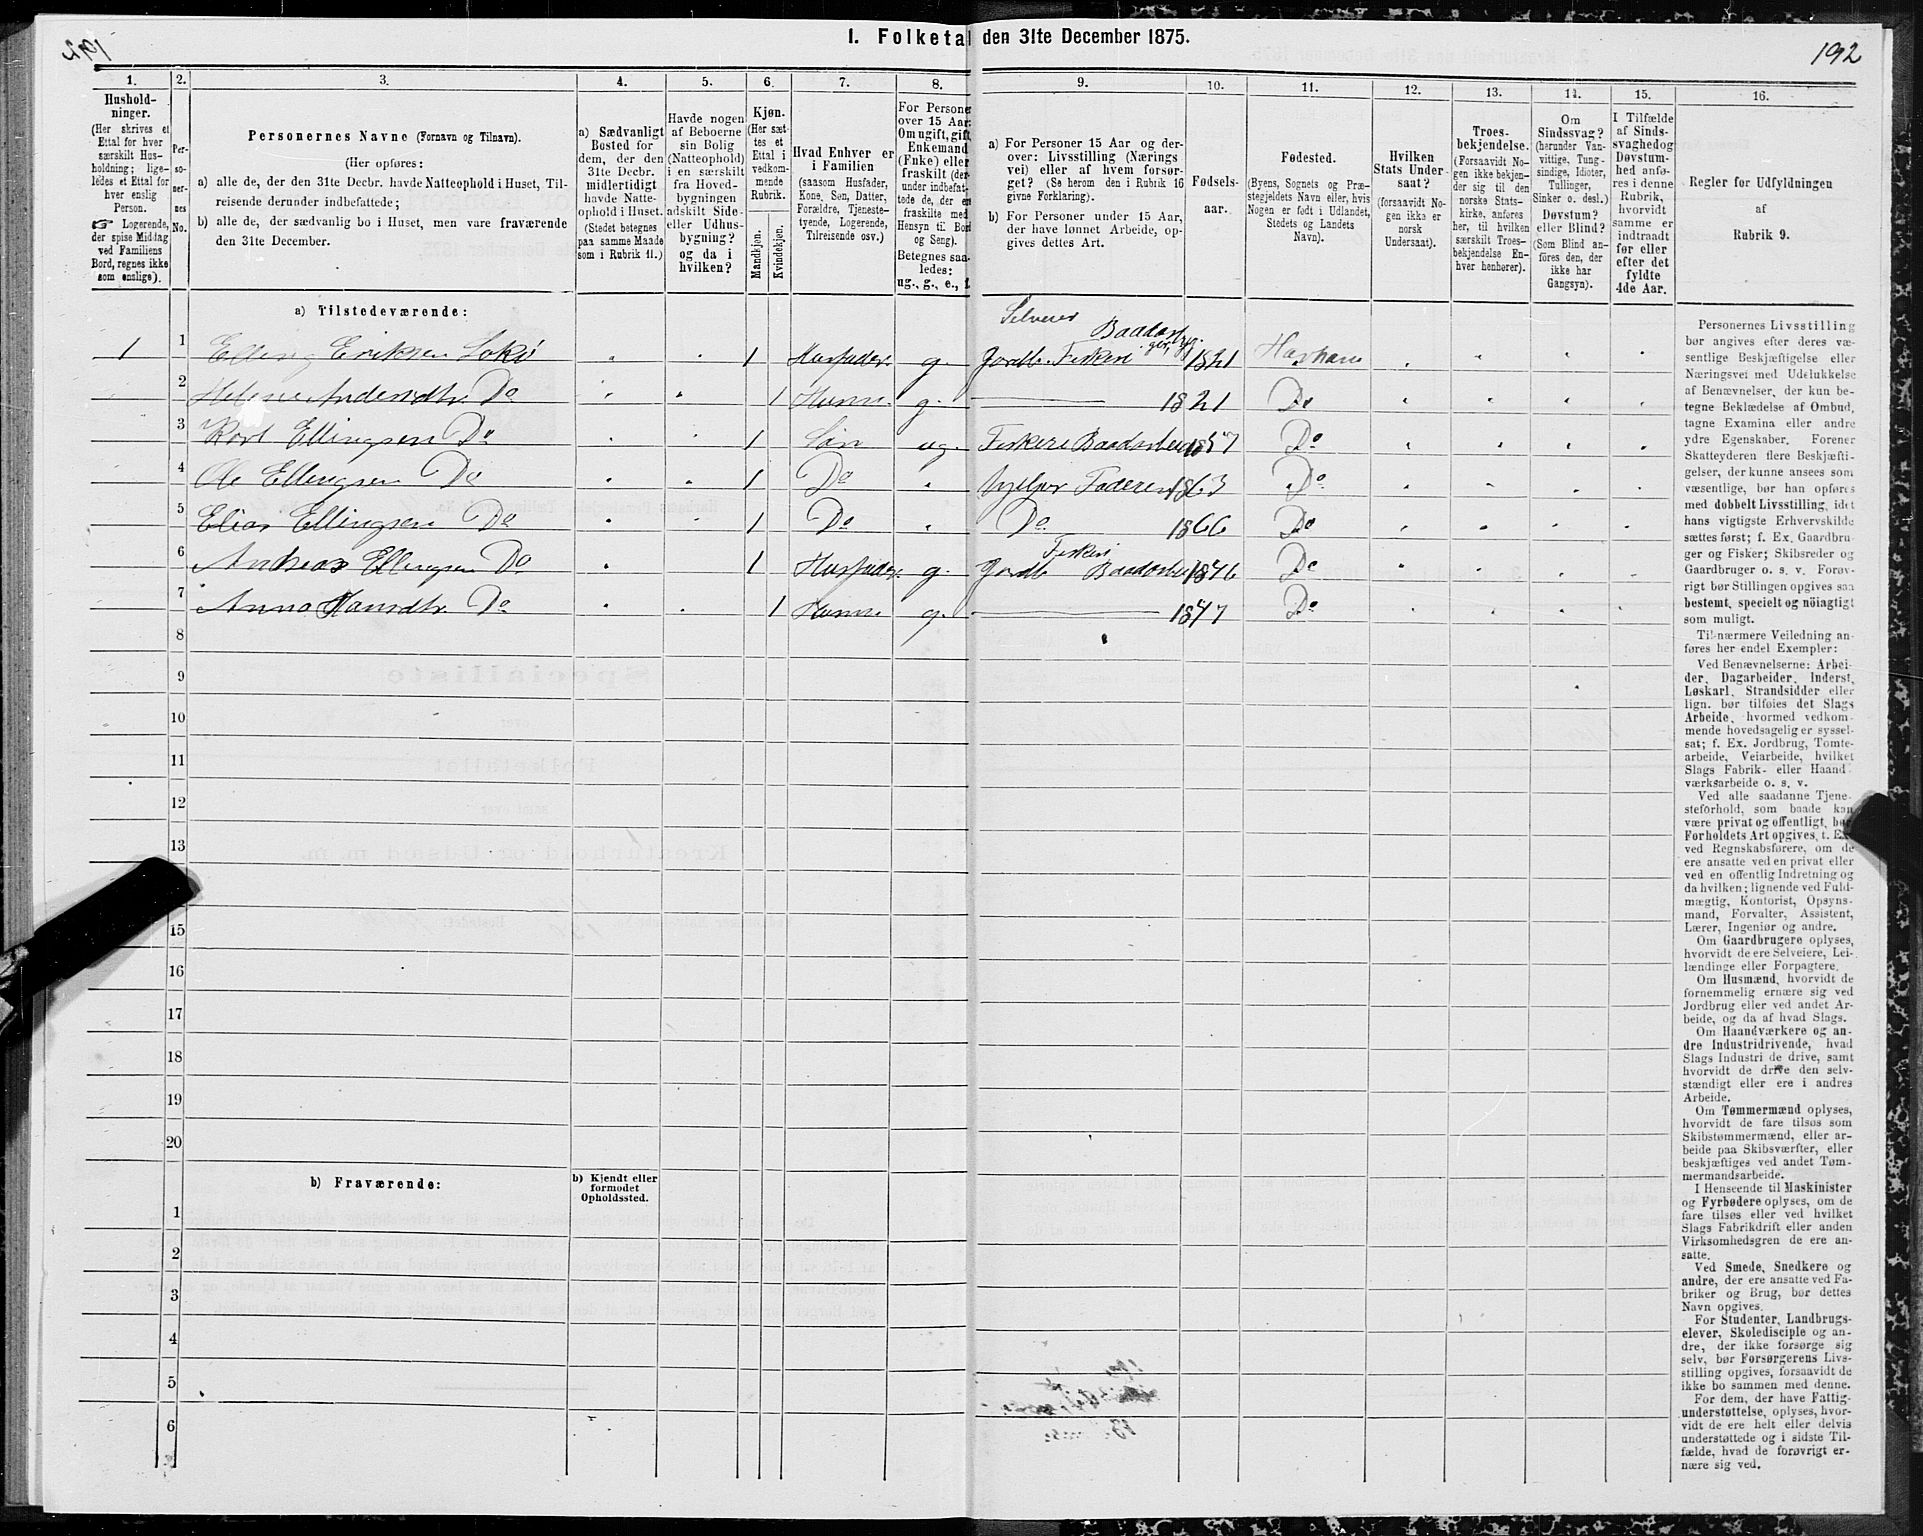 192
I. Folketal den 31te December 1875.
192
1. 2. 3. 4. 5. 6. 7. 8. 9. 10. 11. 12. 13. 14. 15. 16.
Hushold-
ninger.
(Her skrives et
Ettal for hver
særskilt Hus-
holdning; lige-
ledes et Ettal for
hver enslig
Person.
☞ Logerende,
der spise Middag
ved Familiens
Bord, regnes ikke
som enslige).
Per-
soner-
nes
No.
Personernes Navne (Fornavn og Tilnavn).
(Her opføres:
a) alle de, der den 31te Decbr. havde Natteophold i Huset, Til-
reisende derunder indbefattede;
b) alle de, der sædvanlig bo i Huset, men vare fraværende
den 31te December.
a) Sædvanligt
Bosted for
dem, der den
31te Decbr.
midlertidigt
havde Natte-
ophold i Huset.
(Stedet betegnes
paa samme Maade
som i Rubrik 11.)
Havde nogen
af Beboerne
sin Bolig
(Natteophold)
i en særskilt
fra Hoved-
bygningen
adskilt Side-
eller Udhus-
bygning?
og da i
hvilken?
Kjøn.
(Her sæt-
tes et
Ettal i
vedkom-
mende
Rubrik.
Mandkjøn.
Kvindekjøn.
Hvad Enhver er
i Familien
(saasom Husfader,
Kone, Søn, Datter,
Forældre, Tjeneste-
tyende, Logerende,
Tilreisende osv.)
For Personer
over 15 Aar:
Om ugift, gift,
Enkemand
(Enke) eller
fraskilt (der-
under indbefat-
tede de, der er
fraskilte med
Hensyn til Bord
og Seng).
Betegnes saa-
ledes:
ug., g., e., f.
a) For Personer 15 Aar og der-
over: Livsstilling (Nærings
vei) eller af hvem forsør-
get? (Se herom den i Rubrik 16
givne Forklaring).
b) For Personer under 15 Aar,
der have lønnet Arbeide, op-
gives dettes Art.
Fødsels-
aar.
Fødested.
(Byens, Sognets og Præ-
stegjeldets Navn eller, hvis
Nogen er født i Udlandet,
Stedets og Landets
Navn).
Hvilken
Stats Under-
saat?
(forsaavidt No-
gen ikke er
norsk
Undersaat).
Troes-
bekjendelse.
(Forsaavidt No-
gen ikke bekjen-
der sig til den
norske Stats-
kirke, anføres
her, til hvilken
særskilt Troes-
bekjendelse En-
hver henhører).
Om
Sindssvag?
(herunder Van-
vittige, Tung-
sindige, Idioter,
Tullinger,
Sinker o. desl.)
Døvstum?
eller Blind?
(Som Blind an-
føres den, der
ikke har
Gangsyn).
I Tilfælde
af Sinds-
svaghed og
Døvstum-
hed anfø-
res i denne
Rubrik,
hvorvidt
samme er
indtraadt
før eller
efter det
fyldte
4de Aar.
Regler for Udfyldningen
af
Rubrik 9.
a) Tilstedeværende:
Selveier Baadas byg.
1 1 Elling Eriksen Lokø 1 Husfader g. Jordb. Fiskeri 1821 Harham
2 Helene Andersdtr. Do 1 Husm. g. 1821 Do
3 Karl Ellingsen Do 1 Søn ug. Fiskeri 1857 Do
4 Ole Ellingsen Do 1 Do hjelper Faderen 1863 Do
5 Elias Ellingsen Do 1 Do Do 1866 Do
Fiskeri
6 Andreas Ellingsen Do 1 Husfader g. Jordb 1846 Do
7 Anna Hansdtr. Do 1 Husm. g. 1847 Do
8
9
10
11
12
13
15
16
17
18
19
20
b) Fraværende:
b) Kjendt eller
formodet
Opholdssted.
1
2
3
4
5
6
Personernes Livsstilling
bør angives efter deres væ-
sentlige Beskjæftigelse eller
Næringsvei med Udelukkelse
af Benævnelser, der kun be-
tegne Beklædelse af Ombud,
tagne Examina eller andre
ydre Egenskaber. Forener
Skatteyderen flere Beskjæfti-
gelser, der kunne ansees som
væsentlige, bør han opføres
med dobbelt Livsstilling, idet
hans vigtigste Erhvervskilde
sættes først; f. Ex. Gaardbru-
ger og Fisker; Skibsreder og
Gaardbruger o. s. v. Forøv-
rigt bør Stillingen opgives saa
bestemt, specielt og nöiagtigt
som muligt.
Til nærmere Veiledning an-
føres her endel Exempler:
Ved Benævnelserne: Arbei-
der, Dagarbeider, Inderst,
Løskarl, Strandsidder eller
lign. bør tilføies det Slags
Arbeide, hvormed vedkom-
mende hovedsagelig er syssel-
sat; f. Ex. Jordbrug, Tomte-
arbeide, Veiarbeide, hvilket
Slags Fabrik- eller Haand-
værksarbeide o. s. v.
Ved alle saadanne Tjene-
steforhold, som baade kan
være privat og offentligt, bør
Forholdets Art opgives, t. Ex.
ved Regnskabsførere, om de
ere ansatte ved en privat eller
ved en offentlig Indretning og
da hvilken; lignende ved Fuld-
mægtig, Kontorist, Opsyns-
mand, Forvalter, Assistent,
Lærer, Ingeniør og andre.
Om Gaardbrugere oplyses,
hvorvidt de ere Selveiere, Lei-
lændinge eller Forpagtere.
Om Husmænd, hvorvidt de
fornemmelig ernære sig ved
Jordbrug eller ved andet Ar-
beide, og da af hvad Slags.
Om Haandværkere og an-
dre Industridrivende, hvad
Slags Industri de drive, samt
hvorvidt de drive den selv-
stændigt eller ere i andres
Arbeide.
Om Tømmermænd oplyses,
hvorvidt de fare tilsøs som
Skibstømmermænd, eller ar-
beide paa Skibsværfter, eller
beskjæftiges ved andet Tøm-
mermandsarbeide.
I Henseende til Maskinister
og Fyrbødere oplyses, om de
fare tilsøs eller ved hvilket
Slags Fabrikdrift eller anden
Virksomhedsgren de ere an-
satte.
Ved Smede, Snedkere og
andre, der ere ansatte ved Fa-
briker og Brug, bør dettes
Navn opgives.
For Studenter, Landbrugs-
elever, Skoledisciple og an-
dre, der ikke forsørge sig
selv, bør Forsørgerens Livs-
stilling opgives, forsaavidt de
ikke bo sammen med denne.
For dem, der have Fattig-
understøttelse, oplyses, hvor-
vidt de ere helt eller delvis
understøttede og i sidste Til-
fælde, hvad de forøvrigt er-
nære sig ved.